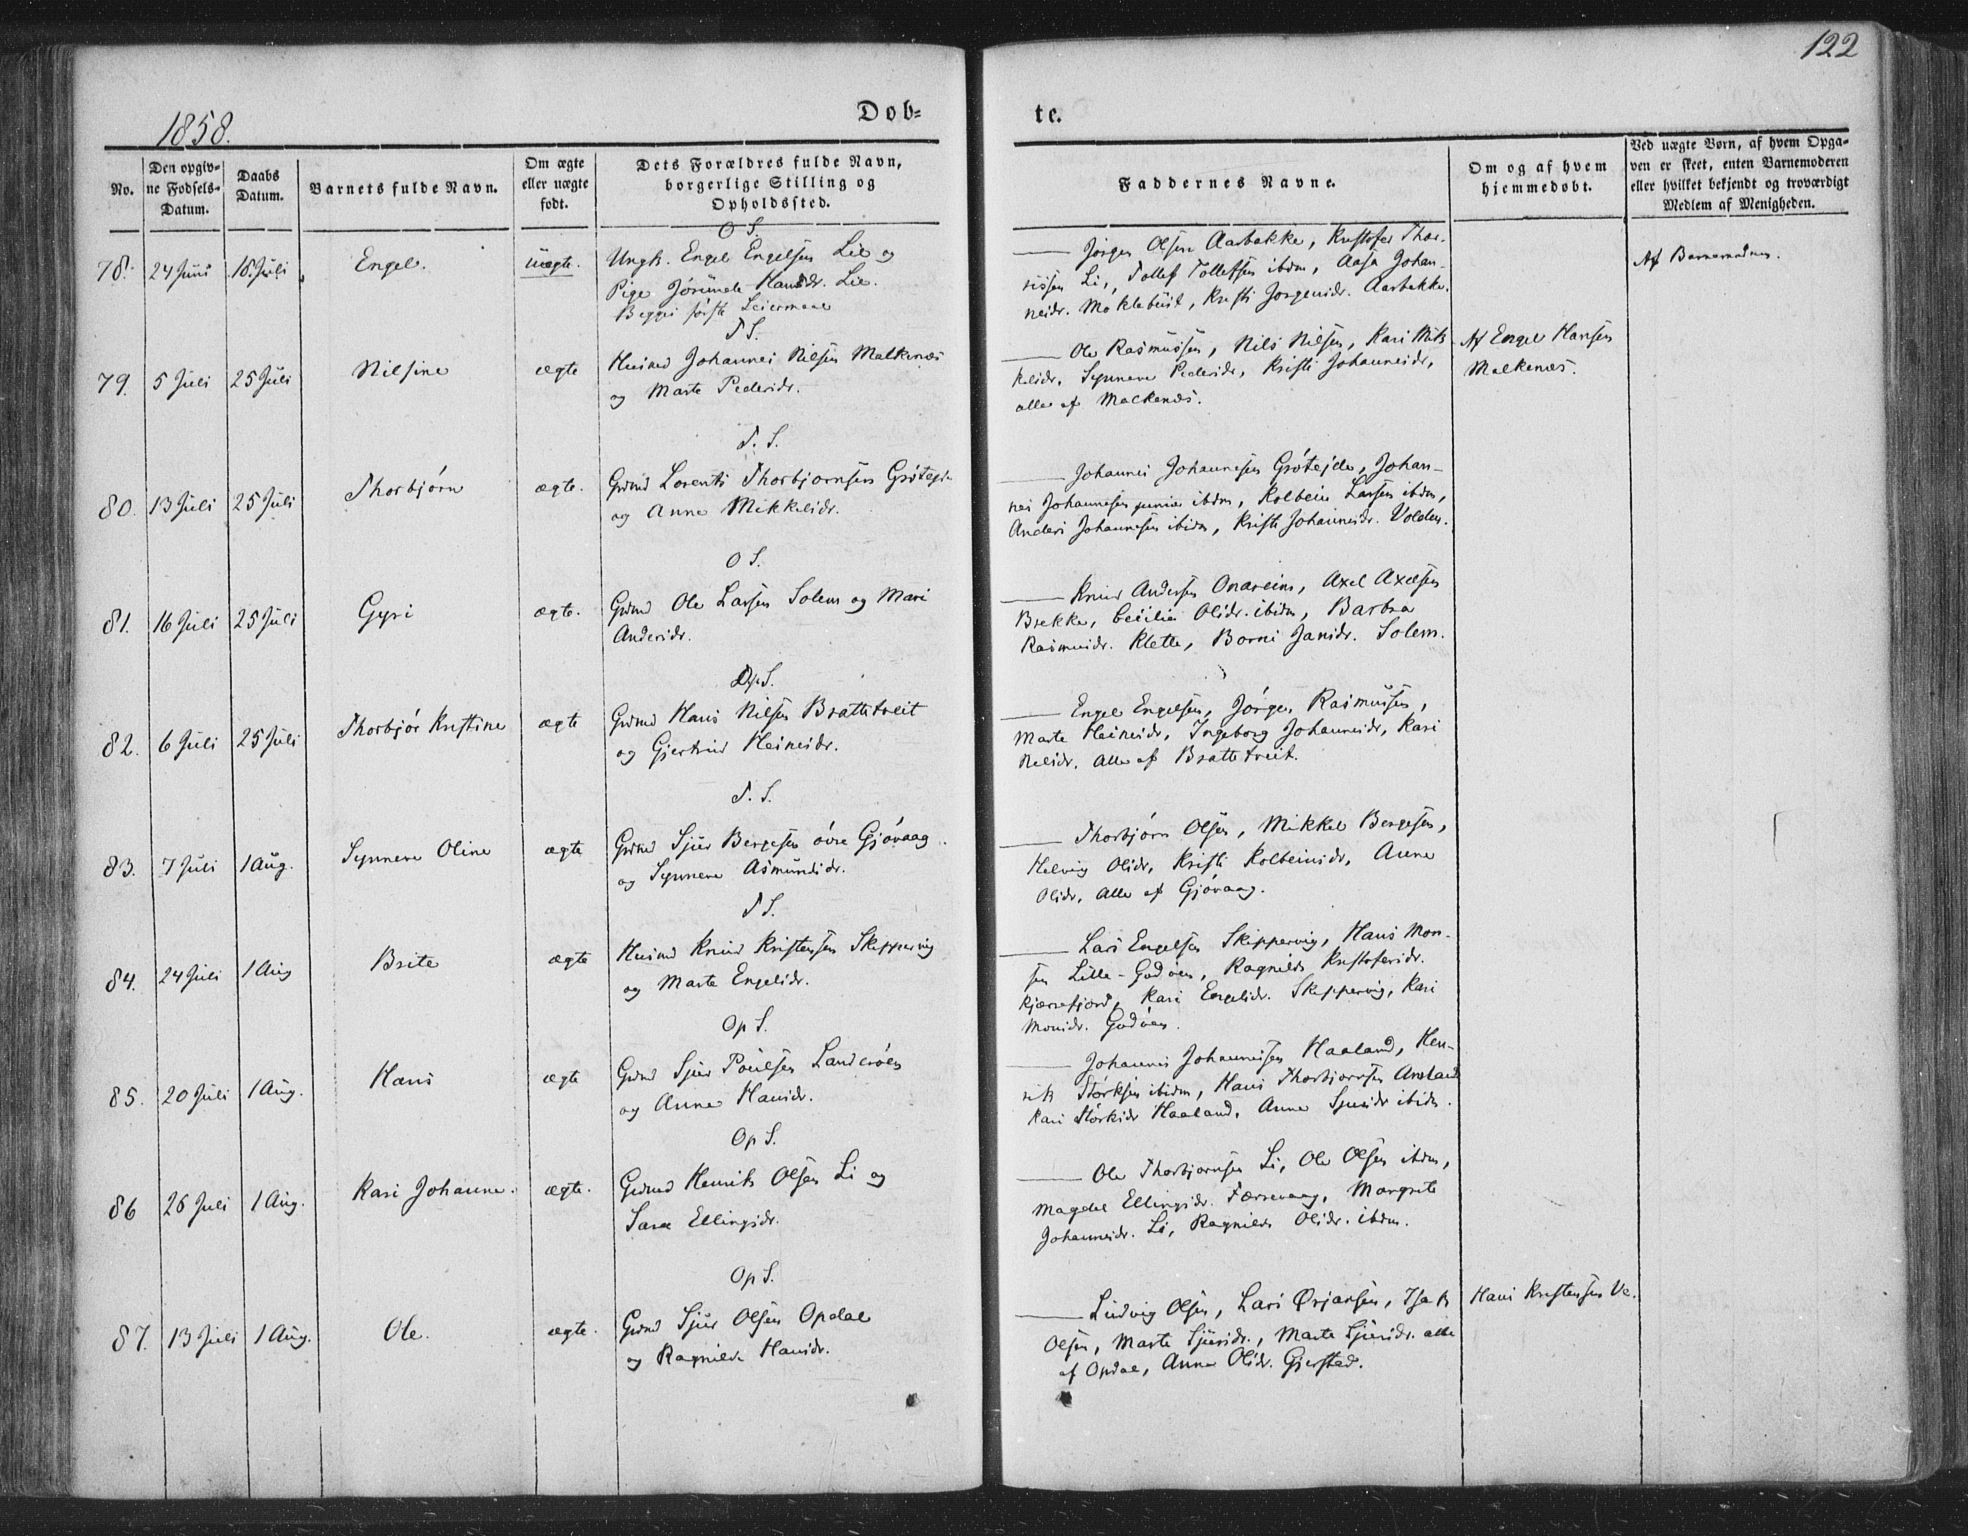 122
1858.
Døb=
te.
No.
Den opgiv-
ne Fødsels-
Datum.
Daabs
Datum.
Barnets fulde Navn.
Om ægte
eller uægte
født.
Dets Forældres fulde Navn,
borgerlige Stilling og
Opholdssted.
Faddernes Navne.
Om og af hvem
hjemmedøbt.
Ved uægte Børn, af hvem Opga-
ven er skeet, enten Barnemoderen
eller hvilket bekjendt og troværdigt
Medlem af Menigheden.
O S.
78. 24 Juni 18 Juli Engel. uægte.
Ungk. Engel Engelsen Lie og
Pige Jørunde Hansdr. Lie.
Begges første Leiermaal
Jørgen Olsen Aarbakke, Kristofer Thor-
sissen Li, Tollef Tollefsen ibdm, Aasa Johan-
nesdr. Moklebust, Kristi Jørgensdr. Aarbakke.
Af Barnemodren.
T S.
79. 5 Juli 25 Juli Nilsine ægte
Husmd Johannes Nilsen Malkenæs
og Marte Pedersdr.
Ole Rasmussen, Nils Nilsen, Kari Mik-
kelsdr, Synneve Pedersdr, Kristi Johannesdr,
alle af Malkenæs.
Af Engel Hansen
Malkenæs.
T. S.
80. 13 Juli 25 Juli Thorbjørn ægte.
Grdmd Lorents Thorbjørnsen Grøtejd-
og Anne Mikkelsdr.
Johannes Johannesen Grøtejde, Johan-
nes Johannesen junior ibdm, Kolbein Larsen ibdm,
Anders Johannesen ibidm, Kristi Johannesdr. Volden.
O S.
81. 16 Juli 25 Juli Gyri ægte.
Grdmd Ole Larsen Solem og Mari
Andersdr.
Knud Andersen Onareim, Axel Axelsen
Brekke, Cecilia Olsdr. ibidm, Barbra
Rasmusdr. Klette, Borni Jansdr. Solem.
Op S.
82. 6 Juli 25 Juli Thorbjør Kristine ægte
Grdmd Hans Nilsen Brattetveit
og Gjertrud Heinesdr.
Engel Engelsen, Jørgen Rasmussen,
Marte Heinesdr, Ingeborg Johannesdr, Kari
Nilsdr. alle af Brattetveit.
T. S.
83. 7 Juli 1 Aug. Synneve Oline ægte
Grdmd Sjur Bergesen øvre Gjøvaag
og Synneve Asmundsdr.
Thorbjørn Olsen, Mikkel Bergesen,
Helvig Olsdr, Kristi Kolbeinsdr, Anne
Olsdr, alle af Gjøvaag.
T S.
84. 24 Juli 1 Aug Brite ægte
Husmd Knud Kristensen Skippervig
og Marte Engelsdr.
Lars Engelsen Skippervig, Hans Mon-
sen Lille-Godøen, Ragnilde Kristofersdr.
Kjærrefjord, Kari Engelsdr. Skippervig, Kari
Monsdr. Godøen.
Op S.
85. 20 Juli 1 Aug. Hans ægte
Grdmd Sjur Poulsen Landerøen
og Anne Hansdr.
Johannes Johannessen Haaland, Hen-
rik Størksen ibidm, Hans Thorbjørnsen Arsland
Kari Størksdr Haaland, Anne Sjursdr ibidm.
Op S.
86 26 Juli 1 Aug. Kari Johanne. ægte.
Grdmd Henrik Olsen Li og
Sara Ellingsdr.
Ole Thorbjørnsen Li, Ole Olsen ibdm,
Magdel Ellingsdr. Færrevaag, Margrete
Johannesdr. Li, Ragnilde Olsdr. ibdm.
Op S.
87. 13 Juli 1 Aug. Ole. ægte.
Grdmd Sjur Olsen Opdal
og Ragnilde Hansdr.
Ludvig Olsen, Lars Ørjansen, Isak
Olsen, Marte Sjursdr., Marte Sjursdr. alle
af Opdal, Anne Olsdr. Gjerstad.
Hans Kristensen Ve.